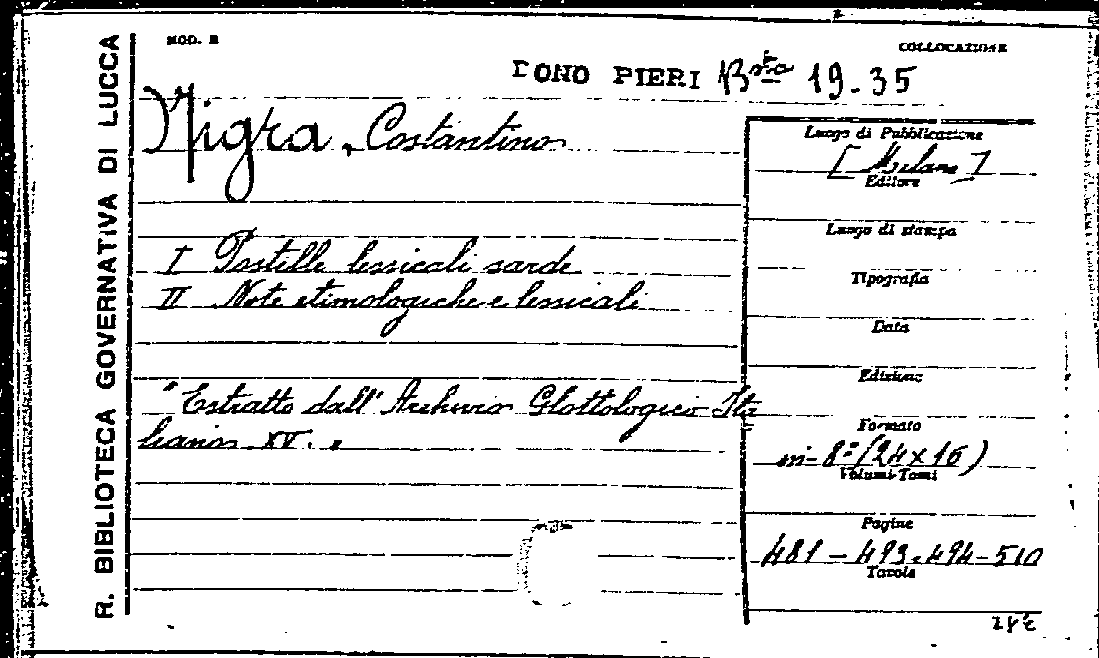 R. BIBLIOTECA GOVERNATIVA DI LUCCA
MOD. B
COLLOCAZIONE
DONO PIERI Bsta 19.35
Nigra, Costantino
I Postille lessicali sarde
II Note etimologiche e lessicali
"Estratto dall'Archivio Glottologico Ita
liano XV."
Luogo di Pubblicazione
[Milano]
Editore
Luogo di stampa
Tipografia
Data
Edizione
Formato
in-8º (24x16)
Volumi-Tomi
Pagine
481-493.494-510
Tavole